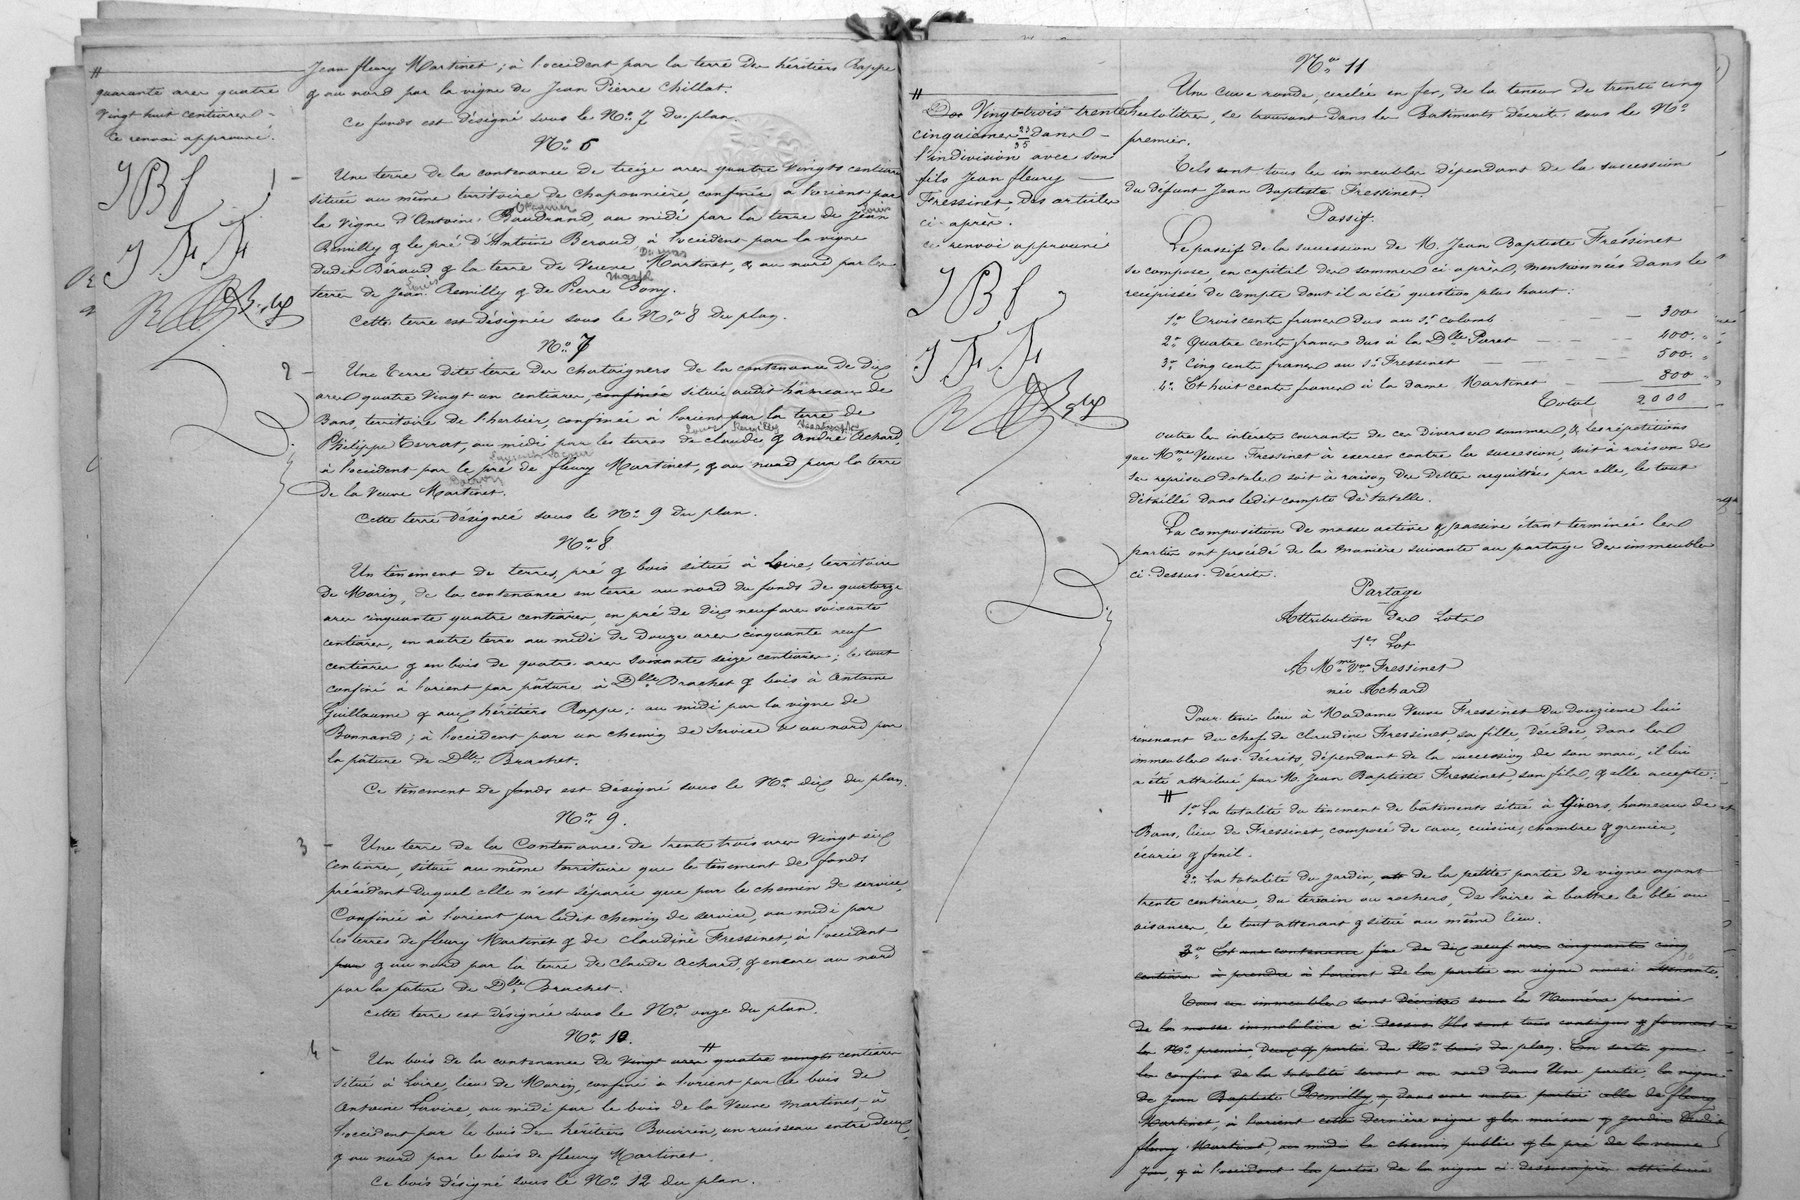 quarante ares quatre
vingt huit centiares
Ce renvoi approuvé.
J B f
J F F
Jean fleury Martinet ; à l'occident par la terre des héritiers Rappe
& au nord par la vigne de Jean Pierre Chillat.
Ce fonds est désigné sous le No. 7 du plan.
No. 6
1 - Une terre de la contenance de treize ares quatre vingts centiares
située au même territoire de Chaponnière, confinée à l'orient par
la vigne d'Antoine Baudrand, au midi par la terre de Jean
Remilly & le pré d'Antoine Beraud à l'occident par la vigne
dudit Béraud & la terre de Veuve Martinet, & au nord par les
terres de Jean Remilly & de Pierre Bony.
Cette terre est désignée sous le No. 8 du plan.
No. 7
2 - Une Terre dite terre des Chataigners de la contenance de dix
ares quatre vingt un centiares, confinée située audit hameau de
Bans, territoire de l'herbier, confinée à l'orient par la terre de
Philippe Terrat, au midi par les terres de claude & André Achard,
à l'occident par le pré de fleury Martinet, & au nord par la terre
de la Veuve Martinet.
Cette terre désignée sous le No. 9 du plan.
No. 8
Un tènement de terres, pré & bois situé à Loire, territoire
de Morin, de la contenance en terre au nord du fonds de quatorze
ares cinquante quatre centiares, en pré de dix neuf ares soixante
centiares, en autre terre au midi de douze ares cinquante neuf
centiares & en bois de quatre ares soixante seize centiares ; le tout
confiné à l'orient par pâture à Dlle. Brachet & bois à Antoine
Guillaume & aux héritiers Rappe ; au midi par la vigne de
Bonnand ; à l'occident par un chemin de service & au nord par
la pâture de Dlle. Brachet.
Ce tènement de fonds est désigné sous le No. dix du plan.
No. 9.
3 - Une terre de la Contenance de trente trois ares Vingt six
Centiares, située au même territoire que le tènement de fonds
précédent duquel elle n'est séparée que par le chemin de service,
Confinée à l'orient par ledit chemin de service, au midi par
les terres de fleury Martinet & de Claudine Fressinet, à l'occident
par & au nord par la terre de Claude Achard, & encore au nord
par la pâture de Dlle. Brachet.
Cette terre est désignée sous le No. onze du plan.
No. 10.
4 - Un bois de la contenance de Vingt ares quatre vingts centiares
situé à Loire, lieu de Morin, confiné à l'orient par le bois de
Antoine Lavoire, au midi par le bois de la Veuve Martinet, à
l'occident par le bois des héritiers Bouvrin, un ruisseau entre deux,
& au nord par le bois de fleury Martinet.
Ce bois désigné sous le No. 12 du plan.
Vingt-trois trente
cinquiemes 23/35 dans
l'indivision avec son
fils Jean fleury
Fressinet des articles
ci-après.
Ce renvoi approuvé
J B f
J F F
No. 11
Une cuve ronde, cerclée en fer, de la teneur de trente cinq
hectolitres, se trouvant dans les Batiments décrits sous le No.
premier.
Tels sont tous les immeubles dépendant de la succession
du défunt Jean Baptiste Fressinet.
Passif.
Le passif de la succession de M. Jean Baptiste Fressinet
se compose, en capital des sommes ci après, mentionnées dans le
récépissé de compte dont il a été question plus haut :
1o. Trois cents francs dus au Sr. Colomb - - 300
2o. Quatre cents francs dus à la Dlle Peret - - 400
3o. Cinq cents francs au Sr. Fressinet - - 500
4o. Et huit cents francs à la dame Martinet - - 800
Total 2000
outre les intérêts courants de ces diverses sommes, & les répétitions
que Mme. Veuve Fressinet à exercer contre la succession, soit à raison de
ses reprises dotales soit à raison des dettes acquittées par elle, le tout
détaillé dans ledit compte de tutelle.
La composition de masse active & passive étant terminée les
parties ont procédé de la manière suivante au partage des immeubles
ci-dessus décrits.
Partage
Attribution des Lots
1er Lot
A Mme. Vve. Fressinet
née Achard
Pour tenir lieu à Madame Veuve Fressinet du douzième lui
revenant du chef de Claudine Fressinet, sa fille, décédée, dans les
immeubles sus-décrits, dépendant de la succession de son mari, il lui
a été attribué par M. Jean Baptiste Fressinet son fils, & elle accepte :
1o. La totalité du tènement de bâtiments situé à Givors, hameau de
Bans, lieu de Fressinet, composé de cave, cuisine, chambre & grenier,
écurie & fenil.
2o. La totalité du jardin, de la petite partie de vigne ayant
trente centiares, du terrain ou rochers, de l'aire à battre le blé ou
aisances, le tout attenant & situé au même lieu.
3o. Et une contenance fixe de dix neuf ares cinquante cinq
centiares à prendre à l'orient de la partie en vigne aussi attenante.
Tous ces immeubles sont décrits sous le Numéro premier
de la masse immobilière ci dessus. Ils sont tous contigus & forment
les No. premier, deux & partie du No. trois du plan. En sorte que
les confins de la totalité seront au nord dans Une partie, la vigne
de Jean Baptiste Remilly & dans une autre partie celle de fleury
Martinet, à l'orient cette dernière vigne & la maison & jardin dudit
fleury Martinet, au midi le chemin public & le pré de la veuve
& à l'occident la partie de la vigne ci dessus après attribuée